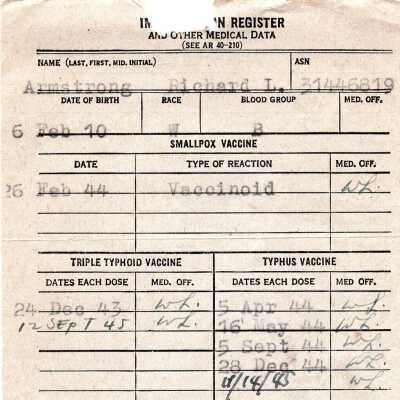 REGISTER
AND OTHER MEDICAL DATA
(SEE AR 40-210)
NAME (LAST, FIRST, MID. INITIAL) ASN
Armstrong Richard L. 31446819
DATE OF BIRTH RACE BLOOD GROUP MED. OFF.
6 Feb 10 W B
SMALLPOX VACCINE
DATE TYPE OF REACTION MED. OFF.
26 Feb 44 Vaccinoid WL.
TRIPLE TYPHOID VACCINE TYPHUS VACCINE
DATES EACH DOSE MED. OFF. DATES EACH DOSE MED. OFF.
24 Dec 43 WL. 5 Apr 44 WL.
12 SEPT 45 WL. 16 May 44 WL.
5 Sept 44 WL.
28 Dec 44 WL.
11/14/45 WL.